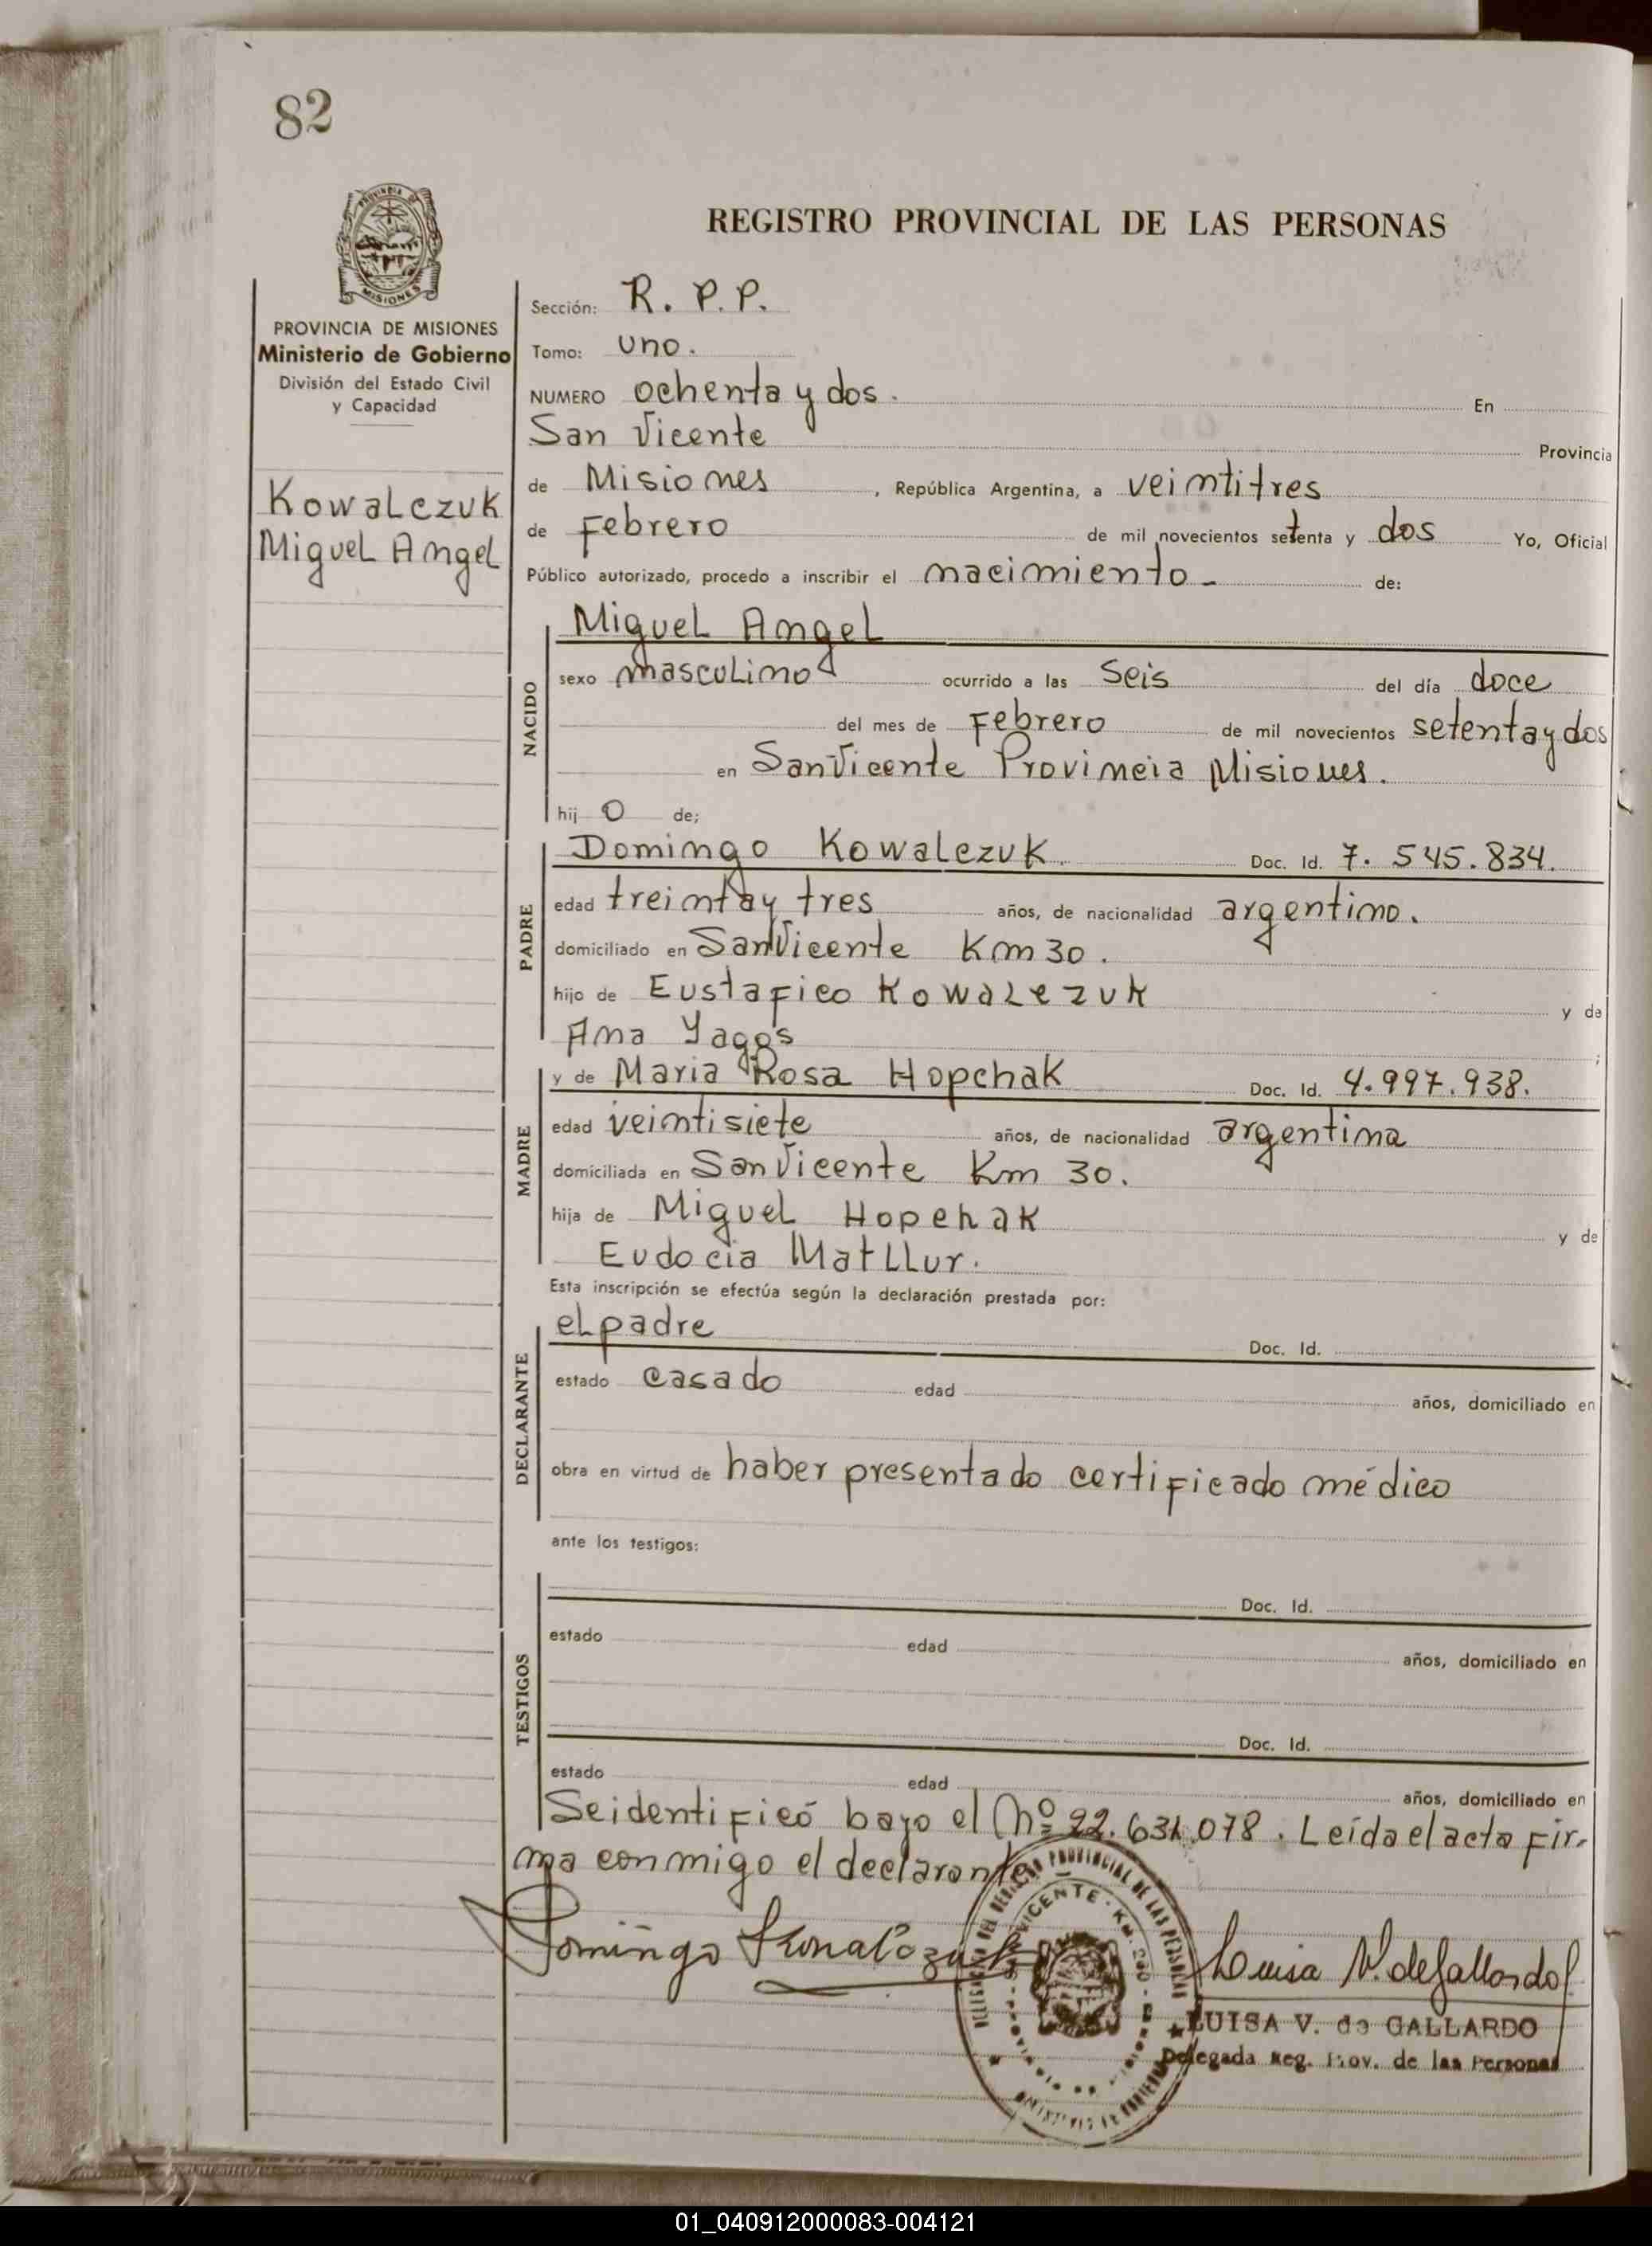 82
PROVINCIA DE MISIONES
Ministerio de Gobierno
División del Estado Civil
y Capacidad
Kowalczuk
Miguel Angel
REGISTRO PROVINCIAL DE LAS PERSONAS
Sección: R. P. P.
Tomo: uno.
NUMERO ochenta y dos. En
San Vicente Provincia
de Misiones, República Argentina, a veintitres
de Febrero de mil novecientos setenta y dos Yo, Oficial
Público autorizado, procedo a inscribir el nacimiento - de:
NACIDO
Miguel Angel
sexo masculino ocurrido a las seis del día doce
del mes de Febrero de mil novecientos setenta y dos
en San Vicente Provincia Misiones.
hij o de;
PADRE
Domingo Kowalczuk. Doc. Id. 7.545.834.
edad treinta y tres años, de nacionalidad argentino.
domiciliado en San Vicente Km 30.
hijo de Eustafico Kowalczuk y de
Ana Yagos ;
MADRE
y de Maria Rosa Hopchak Doc. Id. 4.997.938.
edad veintisiete años, de nacionalidad argentina
domiciliada en San Vicente Km 30.
hija de Miguel Hopchak y de
Eudocia Matllur.
Esta inscripción se efectúa según la declaración prestada por:
DECLARANTE
el padre Doc. Id.
estado casado edad años, domiciliado en
obra en virtud de haber presentado certificado médico
ante los testigos:
TESTIGOS
Doc. Id.
estado edad años, domiciliado en
Doc. Id.
estado edad años, domiciliado en
Se identificó bajo el Nº 22.631.078. Leída el acta fir-
ma conmigo el declarante
Domingo Kowalczuk
Luisa V. de Gallardo
LUISA V. de GALLARDO
Delegada Reg. Prov. de las Personas
01_040912000083-004121